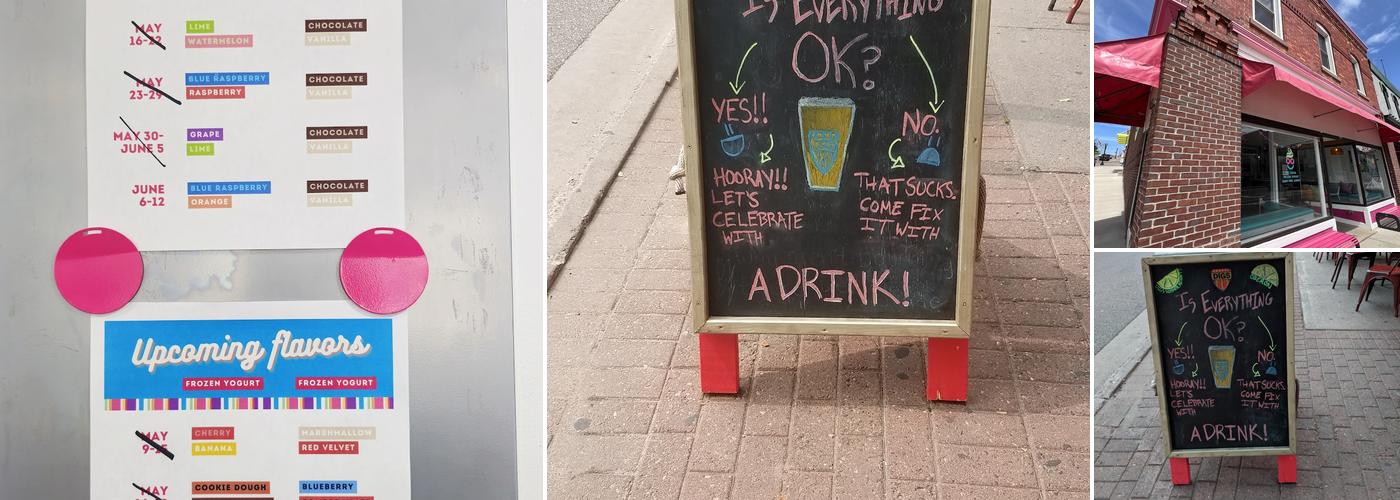 MAY
16-22
LIME
WATERMELON
CHOCOLATE
VANILLA
MAY
23-29
BLUE RASPBERRY
RASPBERRY
CHOCOLATE
VANILLA
MAY 30-
JUNE 5
GRAPE
LIME
CHOCOLATE
VANILLA
JUNE
6-12
BLUE RASPBERRY
ORANGE
CHOCOLATE
VANILLA
Upcoming flavors
FROZEN YOGURT
FROZEN YOGURT
MAY
9-15
CHERRY
BANANA
MARSHMALLOW
RED VELVET
MAY
COOKIE DOUGH
BLUEBERRY
IS EVERYTHING
OK?
YES!!
NO.
HOORAY!!
LET'S
CELEBRATE
WITH
THAT SUCKS.
COME FIX
IT WITH
A DRINK!
DIGS
IS EVERYTHING
OK?
YES!!
NO.
HOORAY!!
LET'S
CELEBRATE
WITH
THAT SUCKS.
COME FIX
IT WITH
A DRINK!